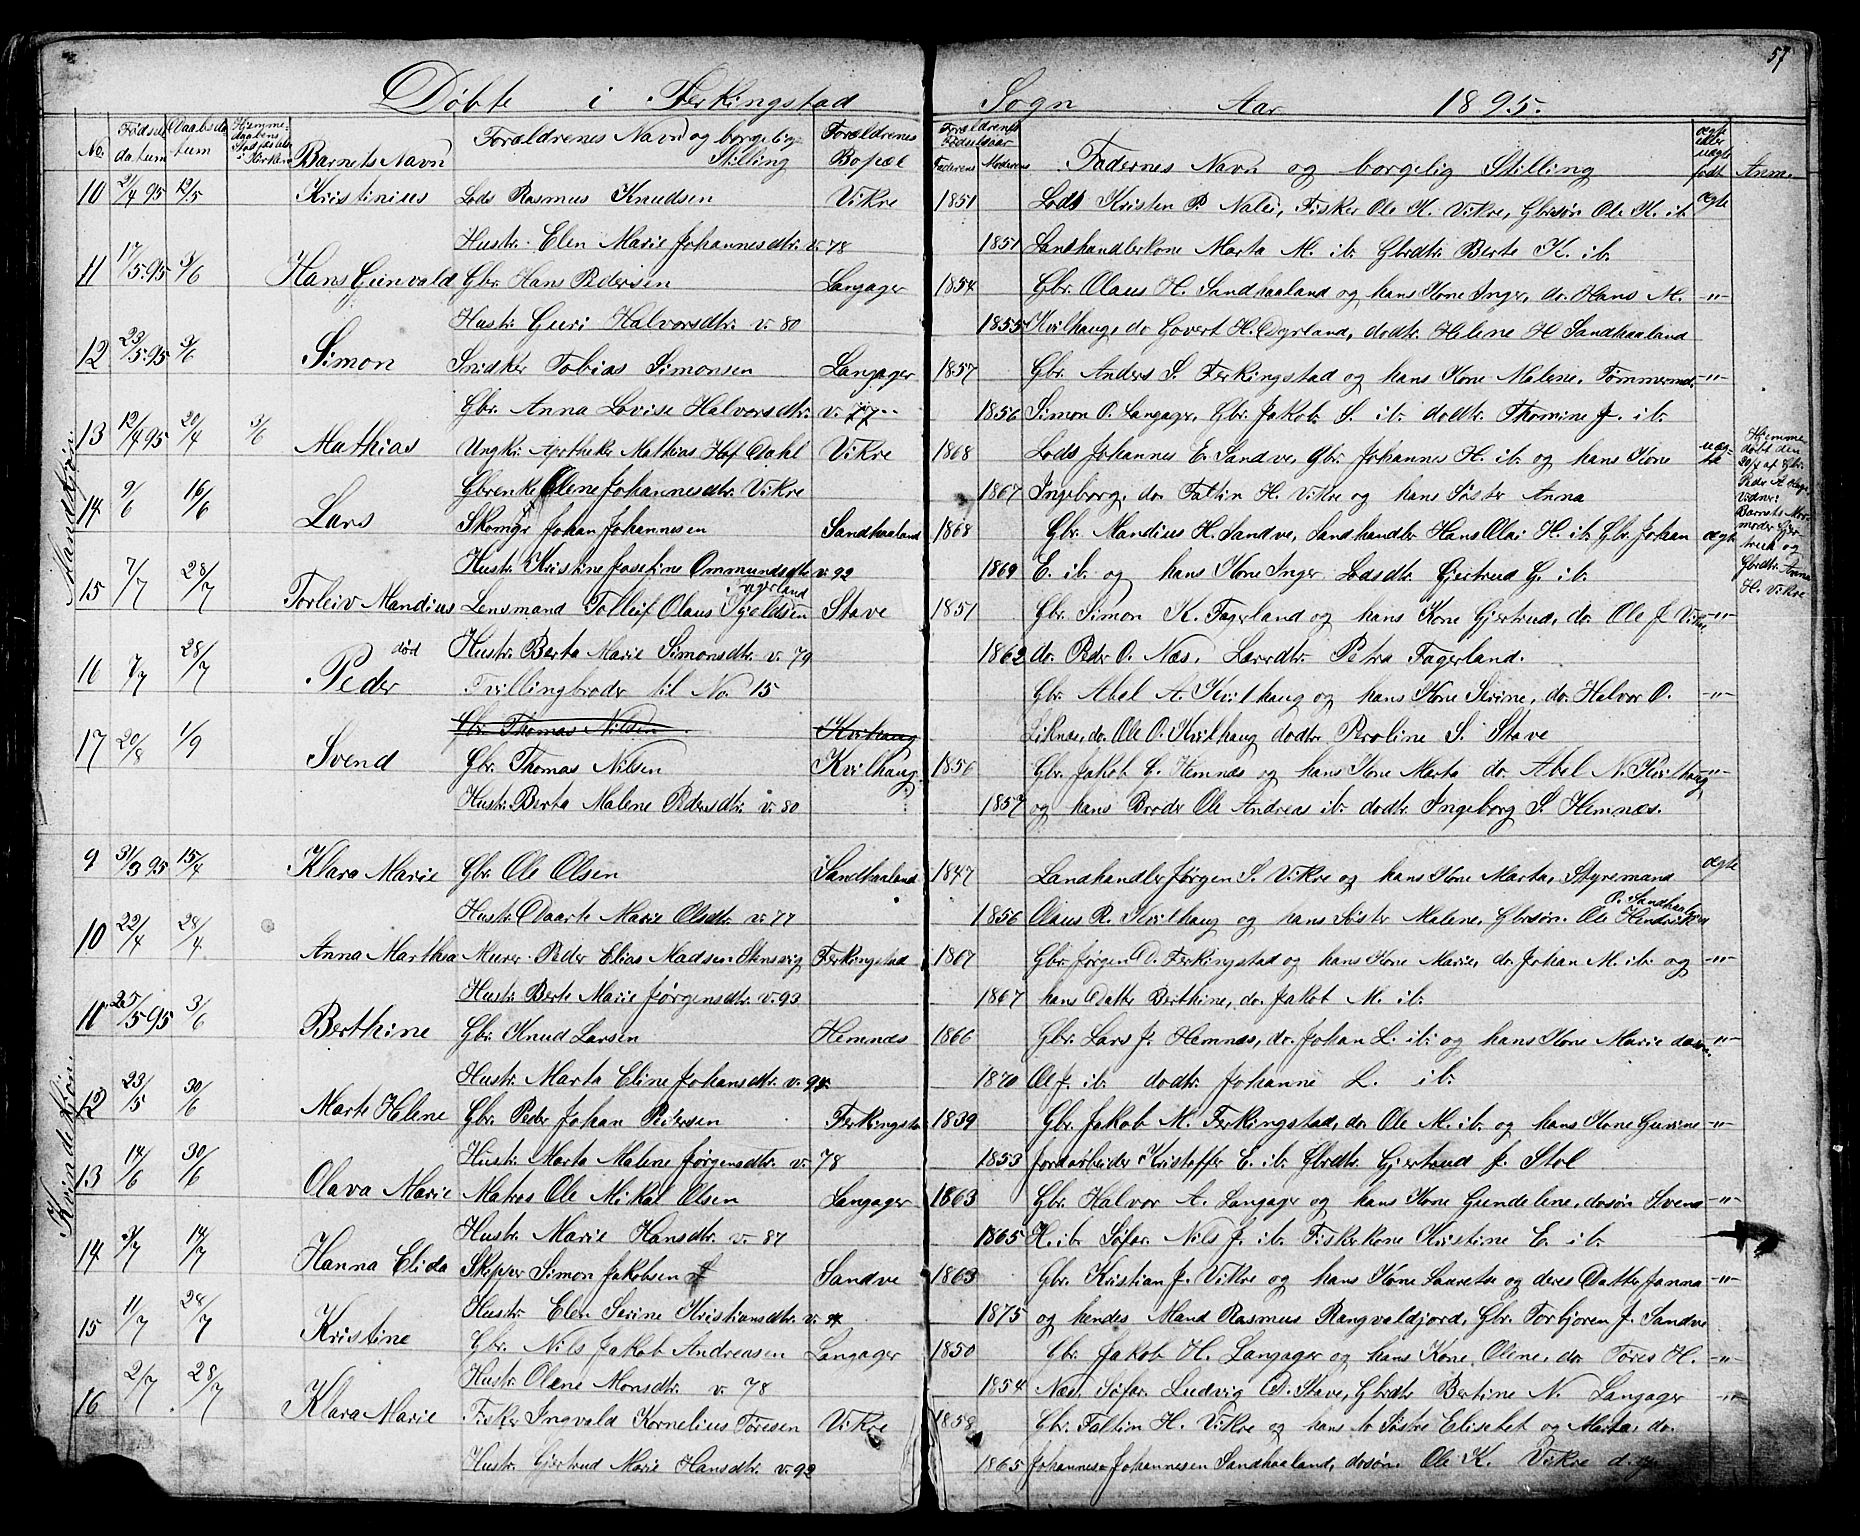 57
Døbte i Ferkingstad Sogn Aar 1895.
No. Fødselsdatum Daabsdatum Hjemmedaabens Stadfæstelse i Kirken Barnets Navn Forældrenes Navn og borgelig Stilling Forældrenes Bopæl Forældrenes Fødselsaar Faderens Moderens Faddernes Navn og borgelig Stilling ægte eller uægte født Anm.
Mandkjøn.
10 21/4 95 12/5 Kristinius Lods Rasmus Knudsen Vikre 1851 Lods Kristen P. Nalei, Fisker Ole K. Vikre, Gbrsøn Ole K. ib. ægte
Hustr. Elen Marie Johannesdtr. v. 78 1851 Landhandlerkone Marta M. ib. Gbrdtr. Berte K. ib.
11 17/5 95 3/6 Hans Gunvald Gbr. Hans Pedersen Langager 1854 Gbr. Olaus H. Sandhaaland og hans Kone Inger, do. Hans M. -"-
Hustr. Guri Halvorsdtr. v. 80 1855 Kvilhaug, do Govert H. Dyrland, dodtr. Helene H Sandhaaland
12 23/5 95 3/6 Simon Snidker Tobias Simonsen Langager 1857 Gbr. Anders S. Ferkingstad og hans Kone Malene, Tømmermd. -"-
Gbr. Anna Lovise Halvorsdtr. v. 77 1856 Simon O. Langager, Gbr. Jakob S. ib. dodtr. Thomine J. ib.
13 12/4 95 20/4 3/6 Mathias Ungkr. Apotheker Mathias Hof Dahl Vikre 1868 Lods Johannes E. Sandve, Gbr. Johannes H. ib. og hans Kone uægte
Gbrenke Olene Johannesdtr. Vikre 1867 Ingeborg, do. Faltin H. Vikre og hans Søster Anna
Hjemme-
døbt den
20/4 af Gbr.
Peder A. Hauge
Vidner:
Barnets Mor-
moder Gjer-
trud og
Gbrdtr. Anna
H. Vikre
14 9/6 16/6 Lars Skomgr Johan Johannesen Sandhaaland 1868 Gbr. Mandius H. Sandve, Landhandler Hans Olai H. ib. Gbr. Johan ægte
Hustr. Kristine Josefine Ommundsdtr v. 92 1869 E. ib. og hans Kone Inger Lodsdtr. Gjertrud G. ib.
15 7/7 28/7 Torleiv Mandius Lensmand Tolleif Olaus Kjeldsen Fagerland Stave 1851 Gbr. Simon K. Fagerland og hans Kone Gjertrud, do. Ole J Vikre -"-
Hustr. Berta Marie Simonsdtr. v. 79 1862 do. Peder O. Næs, Lærrdtr. Petra Fagerland.
16 7/7 28/7 Peder død Tvillingbroder til No 15 Gbr. Abel A. Kvilhaug og hans Kone Serine, do. Halvor O. -"-
Gbr. Thomas Nilsen Kvilhaug Liknæs, do. Ole O. Kvilhaug dodtr. Peroline S. Stave
17 20/8 1/9 Svend Gbr. Thomas Nilsen Kvilhaug 1856 Gbr. Jakob C. Hemnæs og hans Kone Marta do. Abel N. Kvilhaug -"-
Hustr. Berta Malene Pedersdtr. v. 80 1857 og hans Broder Ole Andreas ib. dodtr. Ingeborg S. Hemnæs.
Kvindekjøn.
9 31/3 95 15/4 Klara Marie Gbr. Ole Olsen Sandhaaland 1847 Landhandler Jørgen S. Vikre og hans Kone Marta, Styremand ægte
Hustr. Daarte Marie Olsdtr. v. 77 1856 Olaus R. Kvilhaug og hans Søster Malene, Gbrsøn. Ole Hendriksen O. Sandhaaland
10 22/4 28/4 Anna Marthea Murer Peder Elias Madsen Stensvig Ferkingstad 1867 Gbr. Jørgen D. Ferkingstad og hans Kone Marie, do. Johan M. ib. og -"-
Hustr. Berte Marie Jørgensdtr. v. 93 1867 hans Datter Berthine, do. Jakob M. ib.
11 25/5 95 3/6 Berthine Gbr. Knud Larsen Hemnæs 1866 Gbr. Lars J. Hemnæs, do. Johan L. ib. og hans Kone Marie -"-
Hustr. Marta Eline Johansdtr. v. 94 1870 Ole J. ib. dodtr. Johanne L. ib.
12 23/5 30/6 Marte Helene Gbr. Peder Johan Petersen Ferkingstad 1839 Gbr. Jakob M. Ferkingstad, do Ole M. ib. og hans Kone Gurine -"-
Hustr. Marta Malene Jørgensdtr. v. 78 1853 Jordarbeider Kristoffer E. ib. Gbrdtr. Gjertrud J. Stol
13 14/6 30/6 Olava Marie Matros Ole Mikal Olsen Langager 1863 Gbr. Halvor A. Langager og hans Kone Gundeline, dosøn Svend -"-
Hustr. Marie Hansdtr. v. 87 1865 H. ib. Søfar. Nils J. ib. Fiskerkone Kristine E. ib.
14 3/7 14/7 Hanna Elida Skipper Simon Jakobsen Sandve 1863 Gbr. Kristian J. Vikre og hans Kone Lauretse og deres Datter Janna -"-
Hustr. Elen Serine Kristiansdtr. v. 1875 og hendes Mand Rasmus Rangvaldjord, Gbr. Torbjoren J. Sandve
15 11/7 28/7 Kristine Gbr. Nils Jakob Andreasen Langager 1850 Gbr. Jakob H. Langager og hans Kone Olene, do. Tøres H. -"-
Hustr. Olene Monsdtr. v. 78 1854 Næs, Søfar. Ludvig D. Stave, Gbrdtr Bertine N. Langager
16 2/7 28/7 Klara Marie Fisker Ingvald Kornelius Tøresen Vikre 1858 Gbr. Faltin H. Vikre og hans to Søstre Elisebet og Marta, do. -"-
Hustr. Gjertrud Marie Hansdtr. v. 92 1865 Johannes Johannesen Sandhaaland, dosøn. Ole K. Vikre d.y.